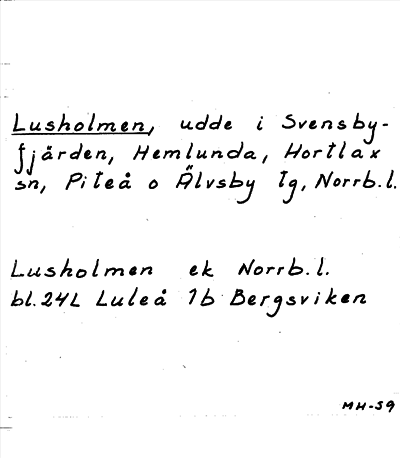 Lusholmen, udde i Svensby-
fjärden, Hemlunda, Hortlax
sn, Piteå o Älvsby tg, Norrb.l.
Lusholmen ek Norrb.l.
bl.24L Luleå 1b Bergsviken
MH-59